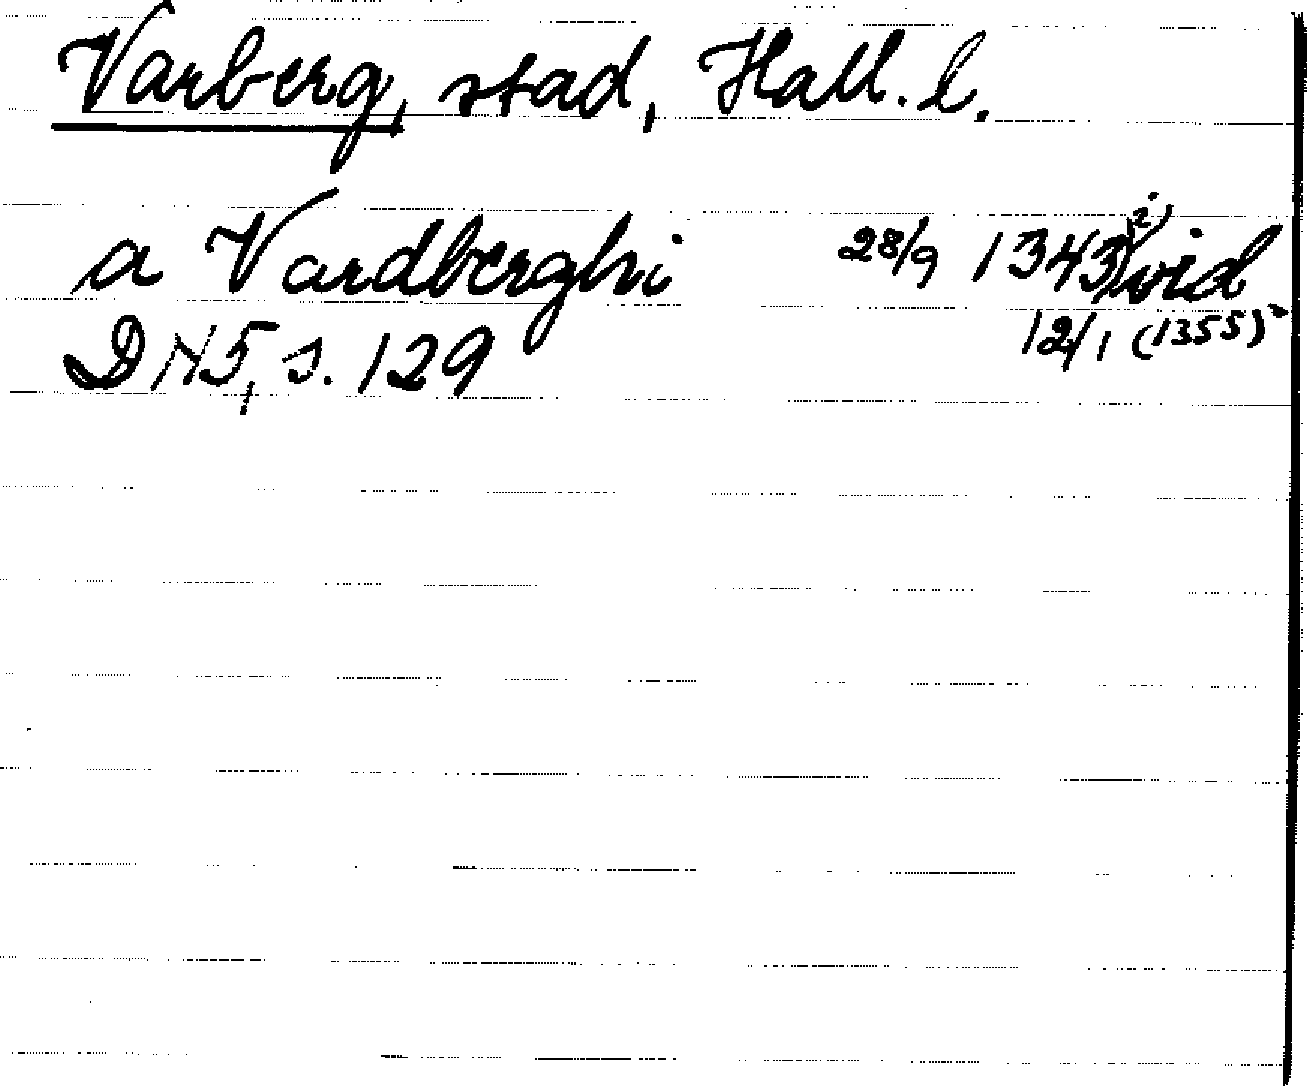 Varberg, stad, Hall. l.
a Vardberghi 28/9 1343 i vid
DN5, s. 129 12/1 (1355)